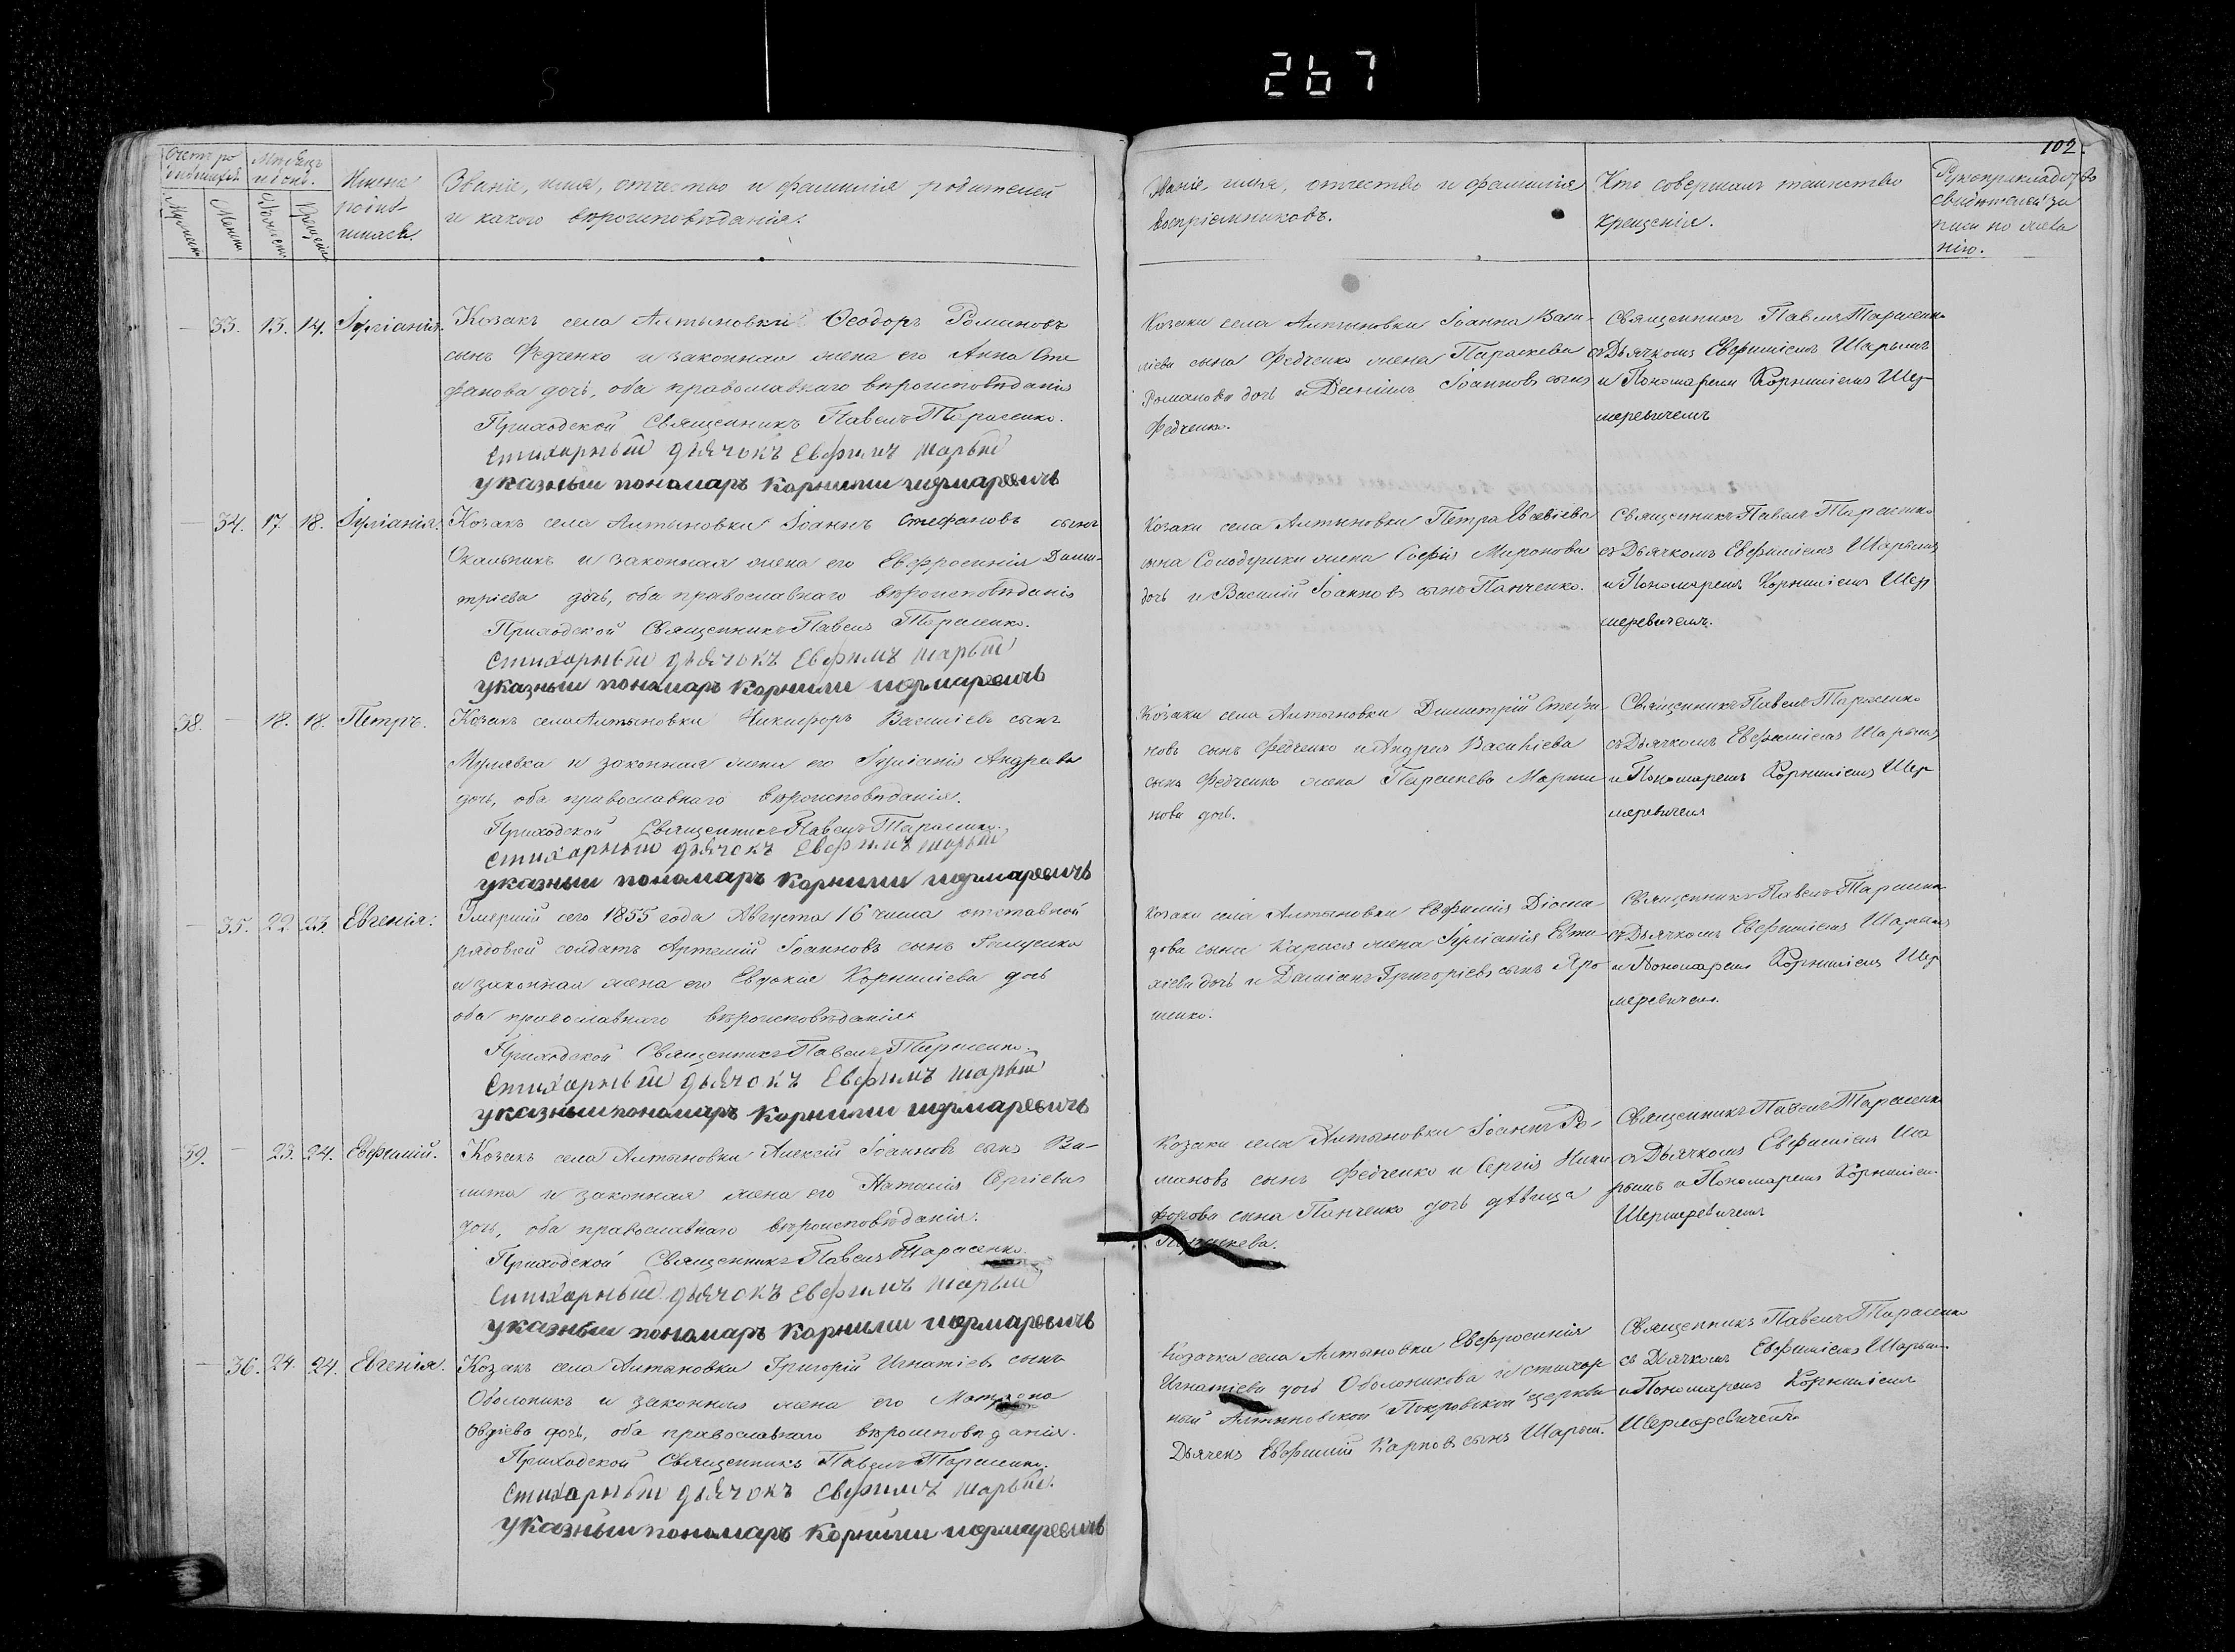 267
102.
Счетъ ро
дившихся
Мѣсяцъ
и день.
Мужеска
Женск
Рожденія
Крещенія
Имена
родив-
шихся.
Званіе, имя, отчество и фамилія родителей
и какого вѣроисповѣданія.
Званіе, имя, отчество и фамилія
воспріемниковъ.
Кто совершалъ таинство
крещенія.
Рукоприкладство
свидѣтелей за
писи по жела
нію.
33. 13. 14. Іуліанія.
Козакъ села Алтыновки Ѳеодоръ Романовъ
сынъ Федченко и законная жена его Анна Сте
фанова дочь, оба православнаго вѣроисповѣданія
Приходской Священникъ Павелъ Тарасенко.
Стихарный дьячокъ Евфимъ Шарый
указный пономарь Корнилій Шермаревичъ
Козаки села Алтыновки Іоанна Васи-
ліева сына Федченко жена Параскева
Романова дочь и Даніилъ Іоанновъ сынъ
Федченко.
Священникъ Павелъ Тарасенко
съ Дьячкомъ Евфиміемъ Шарымъ
и Пономаремъ Корниліемъ Шер-
маревичемъ
34. 17. 18. Іуліанія.
Козакъ села Алтыновки Іоаннъ Стефановъ сынъ
и законная жена его Евфросинія Дими-
тріева дочь, оба православнаго вѣроисповѣданія
Приходской Священникъ Павелъ Тарасенко.
Стихарный дьячокъ Евфимъ Шарый
указный пономарь Корнилій Шермаревичъ
Козаки села Алтыновки Петра Евсевіева
сына жена Софія Миронова
дочь и Василій Іоанновъ сынъ Панченко.
Священникъ Павелъ Тарасенко
съ Дьячкомъ Евфиміемъ Шарымъ
и Пономаремъ Корниліемъ Шер
маревичемъ.
38. 18. 18. Петръ.
Козакъ села Алтыновки Никифоръ Василіевъ сынъ
Мулявка и законная жена его Іуліанія Андреева
дочь, оба православнаго вѣроисповѣданія.
Приходской Священникъ Павелъ Тарасенко.
Стихарный дьячокъ Евфимъ Шарый
указный пономарь Корнилій Шермаревичъ
Козаки села Алтыновки Димитрій Стефа
новъ сынъ Федченко и Андрея Василіева
сына Федченко жена Параскева Марти
нова дочь.
Священникъ Павелъ Тарасенко
съ Дьячкомъ Евфиміемъ Шарымъ
и Пономаремъ Корниліемъ Шер
маревичемъ
35. 22. 23. Евгенія.
Умершій сего 1855 года Августа 16 числа отставной
рядовый солдатъ Артемій Іоанновъ сынъ
и законная жена его Евдокія Корниліева дочь
оба православнаго вѣроисповѣданія
Приходской Священникъ Павелъ Тарасенко.
Стихарный дьячокъ Евфимъ Шарый
указный пономарь Корнилій Шермаревичъ
Козаки села Алтыновки Евфимія Діоми-
дова сына жена Іуліанія Евти-
хіева дочь и Даміанъ Григоріевъ сынъ Яро
шенко.
Священникъ Павелъ Тарасенко
съ Дьячкомъ Евфиміемъ Шарымъ
и Пономаремъ Корниліемъ Шер
маревичемъ.
39. 23. 24. Евфимій.
Козакъ села Алтыновки Алексій Іоанновъ сынъ
и законная жена его Наталія Сергіева
дочь, оба православнаго вѣроисповѣданія.
Приходской Священникъ Павелъ Тарасенко.
Стихарный дьячокъ Евфимъ Шарый
указный пономарь Корнилій Шермаревичъ
Козаки села Алтыновки Іоаннъ Ро-
мановъ сынъ Федченко и Сергія Ники
форова сына Панченко дочь дѣвица
Параскева.
Священникъ Павелъ Тарасенко
съ Дьячкомъ Евфиміемъ Ша
рымъ и Пономаремъ Корниліем
Шермаревичемъ
36. 24. 24. Евгенія.
Козакъ села Алтыновки Григорій Игнатіевъ сынъ
Оболоникъ и законная жена его Матрона
Овдіева дочь, оба православнаго вѣроисповѣданія.
Приходской Священникъ Павелъ Тарасенко.
Стихарный дьячокъ Евфимъ Шарый.
указный пономарь Корнилій Шермаревичъ
Козачка села Алтыновки Евфросинія
Игнатіева дочь Оболоникова и стихар
ный Алтыновской Покровской церкви
Дьячекъ Евфимій Карповъ сынъ Шарый.
Священникъ Павелъ Тарасенко
съ Дьячкомъ Евфиміемъ Шарым
и Пономаремъ Корниліемъ
Шермаревичемъ